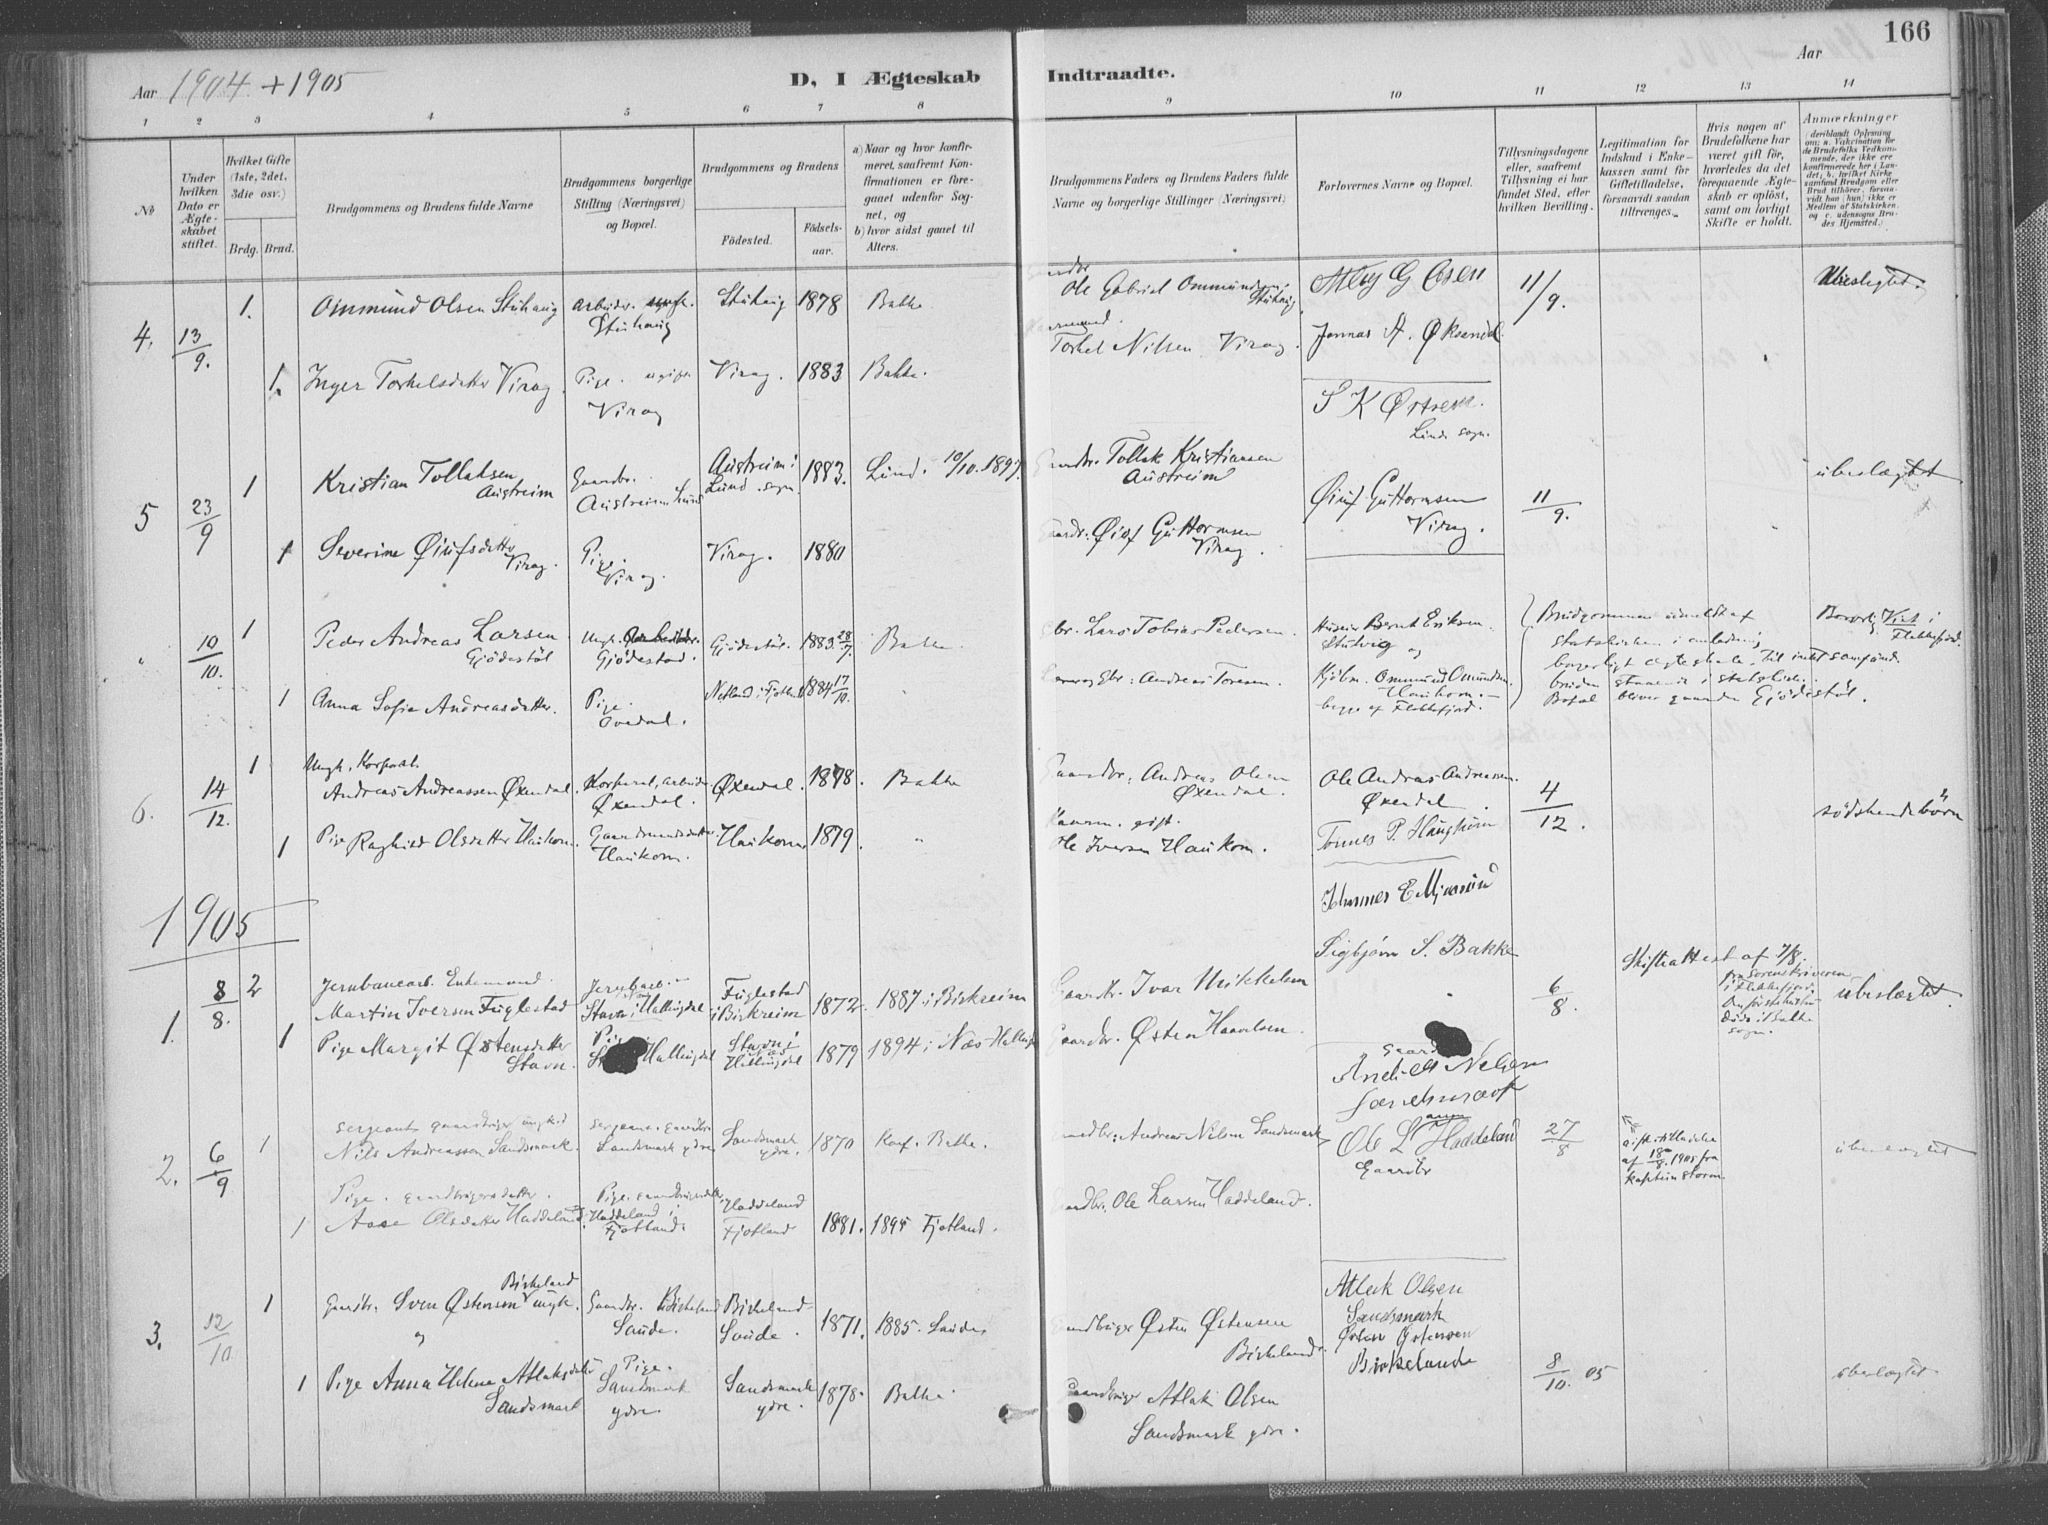 166
Aar 1904 + 1905
D, I Ægteskab
Indtraadte.
Aar
1 2 3 4 5 6 7 8 9 10 11 12 13 14
No
Under hvilken Dato er Ægteskabet stiftet.
Hvilket Gifte (1ste, 2det, 3die osv.)
Brdg. Brud.
Brudgommens og Brudens fulde Navne
Brudgommens borgerlige Stilling (Næringsvei) og Bopæl.
Brudgommens og Brudens
Fødested.
Fødsels-aar.
a) Naar og hvor konfirmeret, saafremt Konfirmationen er foregaaet udenfor Sognet, og
b) hvor sidst gaaet til Alters.
Brudgommens Faders og Brudens Faders fulde Navne og borgerlige Stillinger (Næringsvei)
Forlovernes Navne og Bopæl.
Tillysningsdagene eller, saafremt Tillysning ei har fundet Sted, efter hvilken Bevilling.
Legitimation for Indskud i Enkekassen samt for Giftetilladelse, forsaavidt saadan tiltrænges.
Hvis nogen af Brudefolkene har været gift før, hvorledes da det foregaaende Ægteskab er opløst, samt om lovligt Skifte er holdt.
Anmærkninger
(deriblandt Oplysning om: a. Vakcination for de Brudefolks Vedkommende, der ikke ere konfirmerede her i Landet; b. hvilket Kirkesamfund Brudgom eller Brud tilhører, forsaavidt han (hun) ikke er Medlem af Statskirken, og c. udensogns Brudes Hjemsted.)
4. 13/9. 1. Ommund Olsen Stuhaug
Stuhaug
Stuhaug 1878 Bakke
Ole Gabriel Ommundsen Stuhaug
11/9.
1. Inger Torkelsdatter Virag.
Pige. ugift Virag
Virag. 1883 Bakke.
Torkel Nilsen Virag.
Jonnas A. Øksendal
S K Østrem.
Lunds sogn.
5 23/9 1 Kristian Tollaksen Austreim
Gaardbr. Austreim Lund
Austreim i Lund sogn 1883. Lund. 10/10.1897.
Gaardbr. Tollak Kristiansen Austreim
Øiuf Guttormsen Virag.
11/9.
ubeslægtet
1 Severine Øiufsdatter Virag.
Pige. Virag.
Virag. 1880
Gaardbr. Øiuf Guttormsen Virag.
" 10/10. 1 Peder Andreas Larsen Gjødestøl
Ungk. Gjødestad.
Gjødestøl. 1883 28/7. Bakke.
Gbr. Lars Tobias Pedersen.
Bernt Eriksen Stulvig og
Brudgommen udmeldt af statskirken i anledning borgerligt ægteskab.
Flekkefjord.
1 Anna Sofie Andreasdatter.
Pige.
Netland i Fjotland 1884 17/10.
Gbr. Andreas Toresen.
Kjøbm. Ommund Omundsen Haukom. begge af Flekkefjord.
bruden staaende i statskirken. Bopæl bliver Gjødestøl.
6. 14/12. 1 Ungk. Korporal. Andreas Andreassen Øxendal.
Korporal, arbeider Øxendal.
Øxendal. 1878. Bakke
Gaardbr. Andreas Olsen Øxendal.
Ole Andreas Andreassen. Øxendal
4/12.
sødskendebörn
1 Pige Ragnild Olsdatter Haukom.
Gaardmandsdatter. Haukom.
Haukom 1879. "
Ole Iversen Haukom.
Tønnes P. Haughom
1905
Sigbjørn S. Bakke
1. 8/8. 2 Jernbanearb. Enkemand. Martin Iversen Fuglestad
Jernbarb. Stavn i Hallingdal
Fuglestad i Birkreim 1872. 1887 i Birkreim
Gaardbr. Ivar Mikkelsen
6/8.
Skifteattest af 7/8. fra Sorenskriveren i Flekkefjord.
ubeslægtet
1 Pige Margit Østensdatter Stavn.
Hallingdal
Stavn i Næs Hallingdal 1879 1894 i Næs Halling
Gaardbr. Østen Haavelsen.
2. 6/9 1 Sergeant gaardbruger ungk. Nils Andreassen Sandsmark.
Sergeant. gaardbr. Sandsmark ydre
Sandsmark ydre. 1870 Konf. Bakke.
Andreas Nilsen Sandsmark
Ole L Haddeland Gaardbr
27/8
gift.tilladelse af 18/8 1905 fra kaptein Storm
ubeslægtet
1 Pige. gaardbrugersdatter. Aase Olsdatter Haddeland
Pige. gaardbrugersdatter Haddeland i Fjotland.
Haddeland Fjotland 1881. 1895 Fjotland.
Gaardbr. Ole Larsen Haddeland.
3. 12/10 1 Gaardbr. Sven Østensen Birkeland ungk. og
Gaardbr. Birkeland Saude.
Birkeland Saude. 1871. 1885. Saude
Gaardbruger Østen Østensen Birkeland.
Atlak Olsen Sandsmark
Østen Østensen Birkelande
1 Pige Anna Helene Atlaksdatter Sandsmark
Pige. Sandsmark ydre.
Sandsmark ydre. 1878. Bakke
Gaardbruger Atlak Olsen Sandsmark ydre.
8/10. 05
ubeslægtet